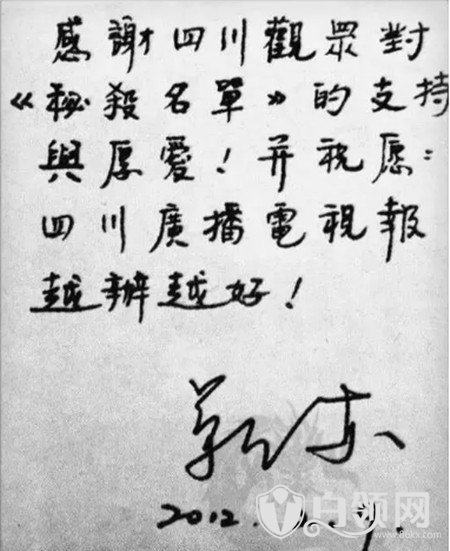 感謝四川觀眾對
《秘殺名單》的支持
與厚愛！并祝愿：
四川廣播電視報
越辦越好！
靳东
2012.
白领网
www.80xx.com